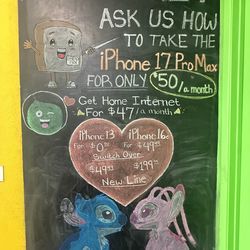 ASK US HOW
TO TAKE THE
iPHONE 17 PRO MAX
FOR ONLY $50/a month
Get Home Internet
For $47/a month
iPhone 13 iPhone 16e
For $0 For $49.99
Switch Over
$49.99 $199.99
New Line